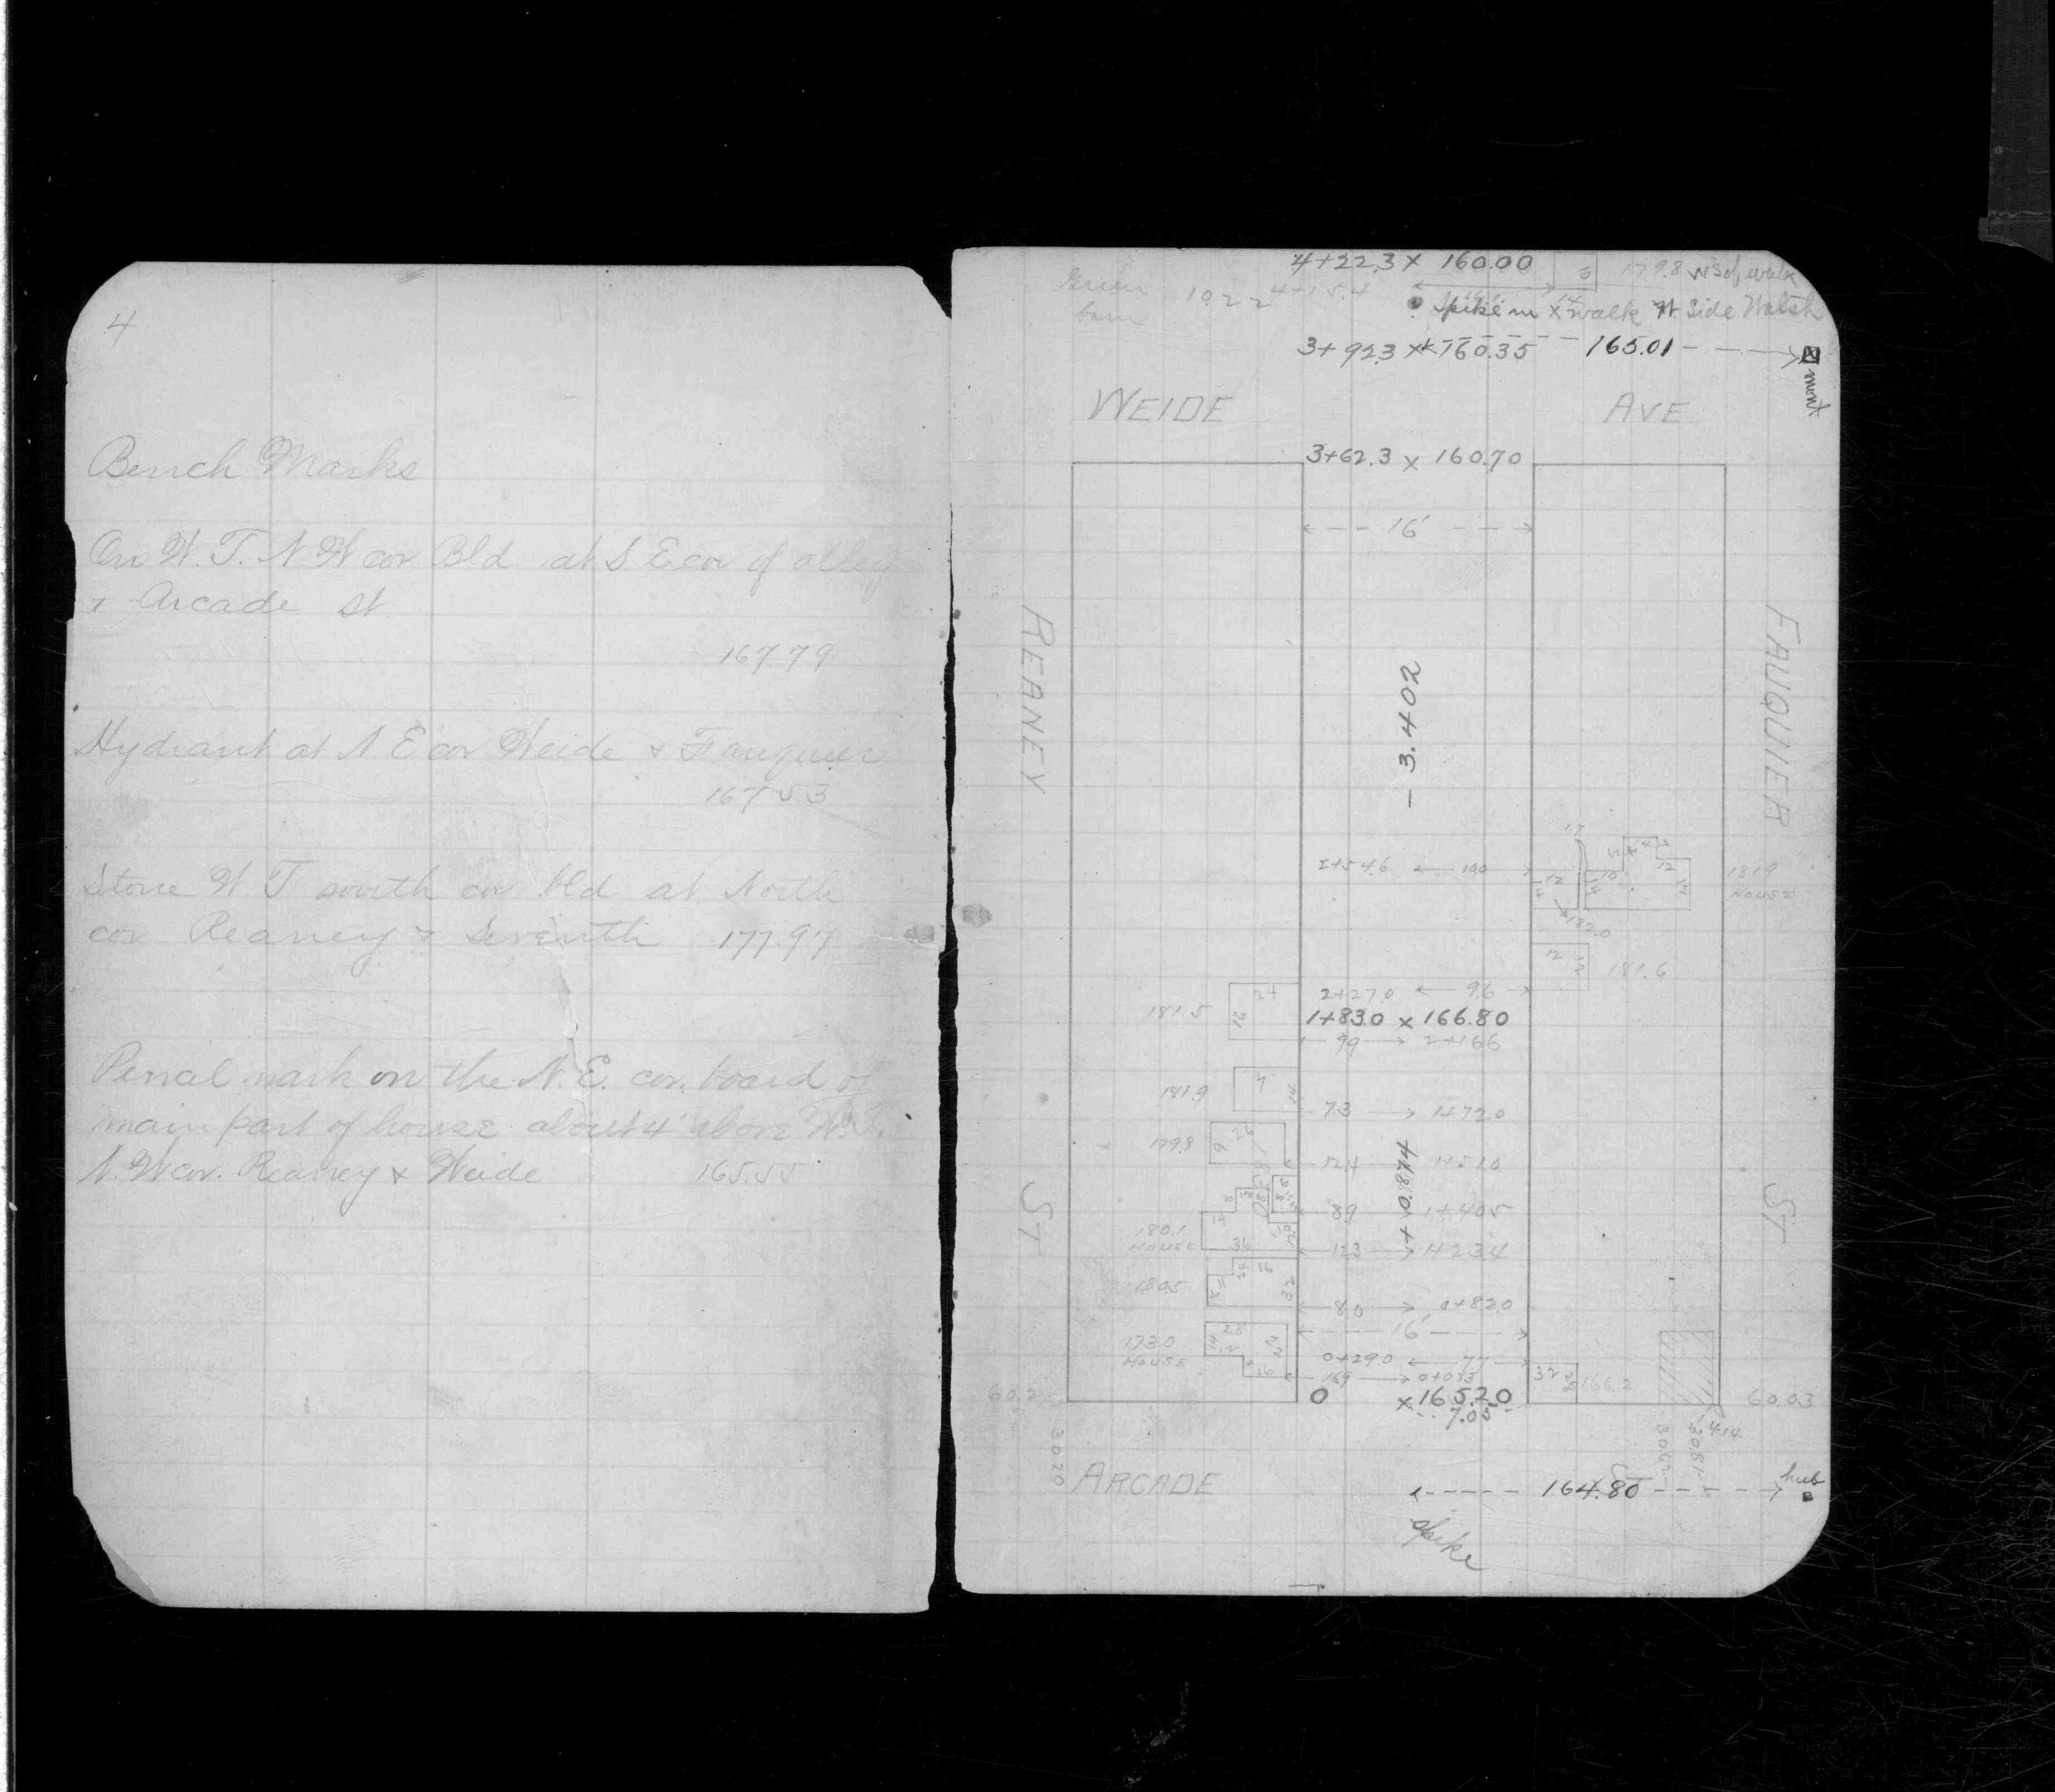 4
Bench Marks
On W. T. N W cor Bld. at S. E cor of alley
+ Arcade St
167.79
Hydrant at N. E cor Weide & Fauquier
167.53
Stone W T south cor bld at North
cor Reaney & Seventh 177.97
Pencal mark on the N. E. cor. board of
main part of house about 4' above W. T.
N. W cor. Reaney & Weide 165.55
4+22.3 x 160.00
179.8 W S of walk
barn
10.2 2 4+15.4
Spike in x walk W Side Walsh
3+92.3 x 160.35 165.01
mont
WEIDE AVE
3+62.3 x 160.70
16'
REANEY ST
FAUQUIER ST
- 3.402
2+54.6 10.0
181.9
HOUSE
182.0
12 12 181.6
2+27.0 9.6
181.5 16 24
1+83.0 x 166.80
9.9 2+16.6
181.9 7 14
7.3 1+72.0
179.8 9 26
12.4 1+51.0
+ 0.874
8.9 1+40.5
180.1
HOUSE
36
12.3 1+23.4
180.5 16 32
8.0 0+82.0
16'
173.0
HOUSE
28 14 12 22 16
0+29.0 7.7
16.9 0+08.3
32 166.2
60.2 60.03
0 x 165.20
7.05
30.20
30.62 30.81 4.14
ARCADE
164.80
hub
Spike